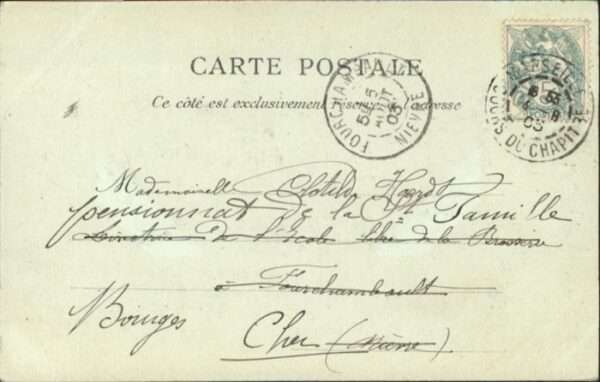 CARTE POSTALE
Ce côté est exclusivement réservé à l'adresse
FOURCHAMBAULT
5 AOUT 03
NIÈVRE
MARSEILLE
03
COURS DU CHAPITRE
5
Mademoiselle Clotilde
pensionnat de la Ste Famille
Directrice de l'école libre de la
à Fourchambault
Bourges
Cher (Nièvre)